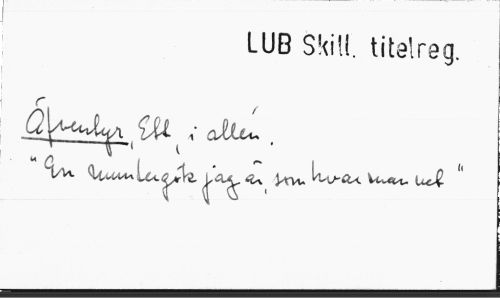 LUB Skill. titelreg.
Äfventyr, Ett, i allén.
"En muntergök jag är, som hvar man vet"